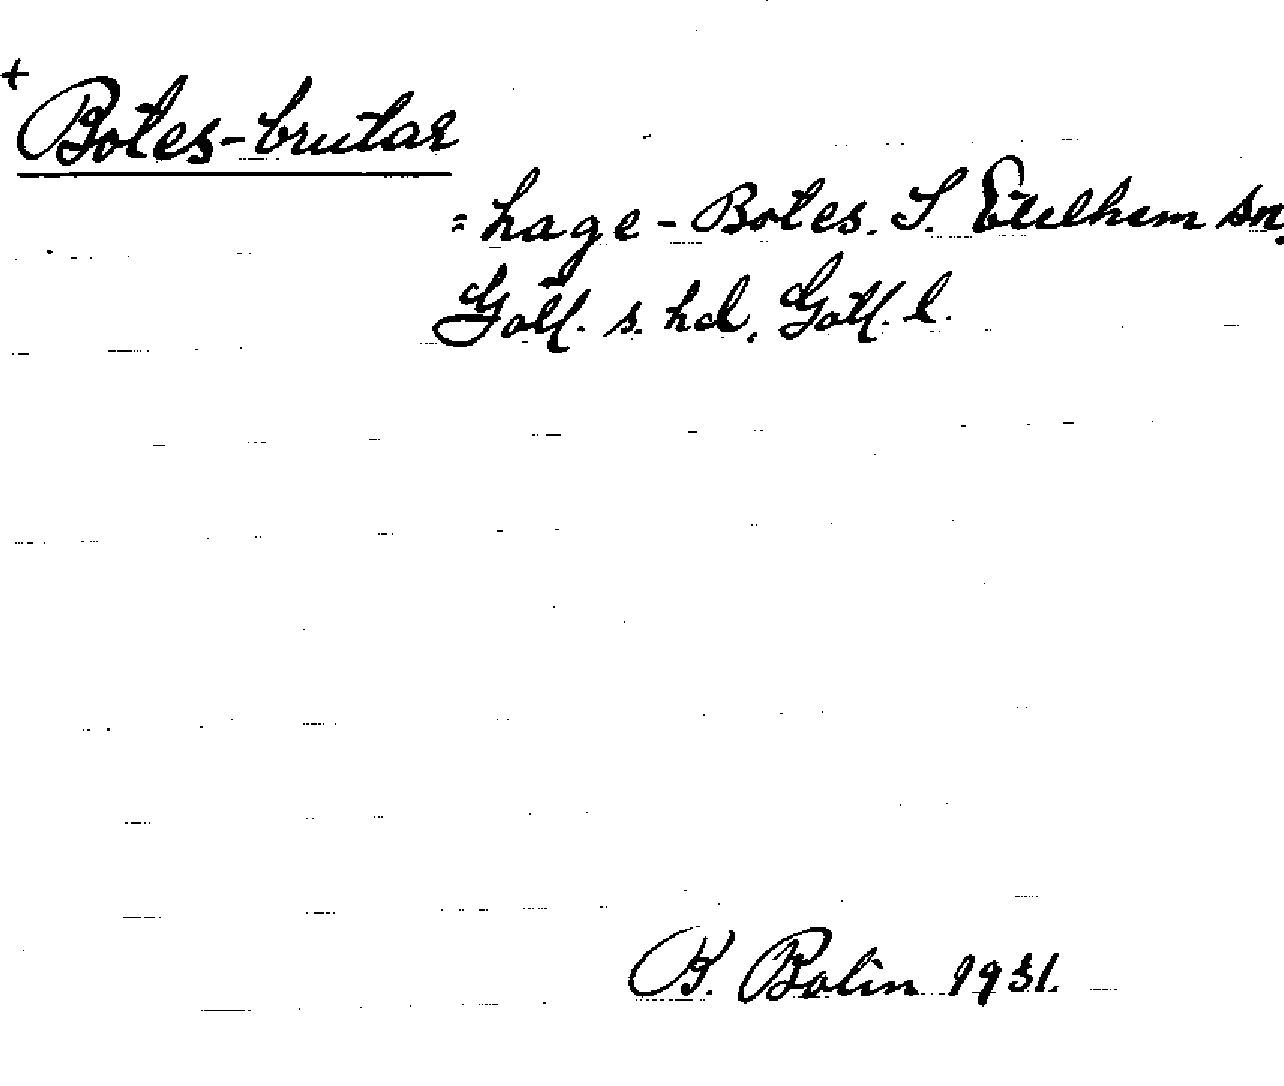 +
Botes-brutar
= hage - Botes. T. Eskelhem sn.
Gotl. s. hd, Gotl. l.
K. Bolin 1931.